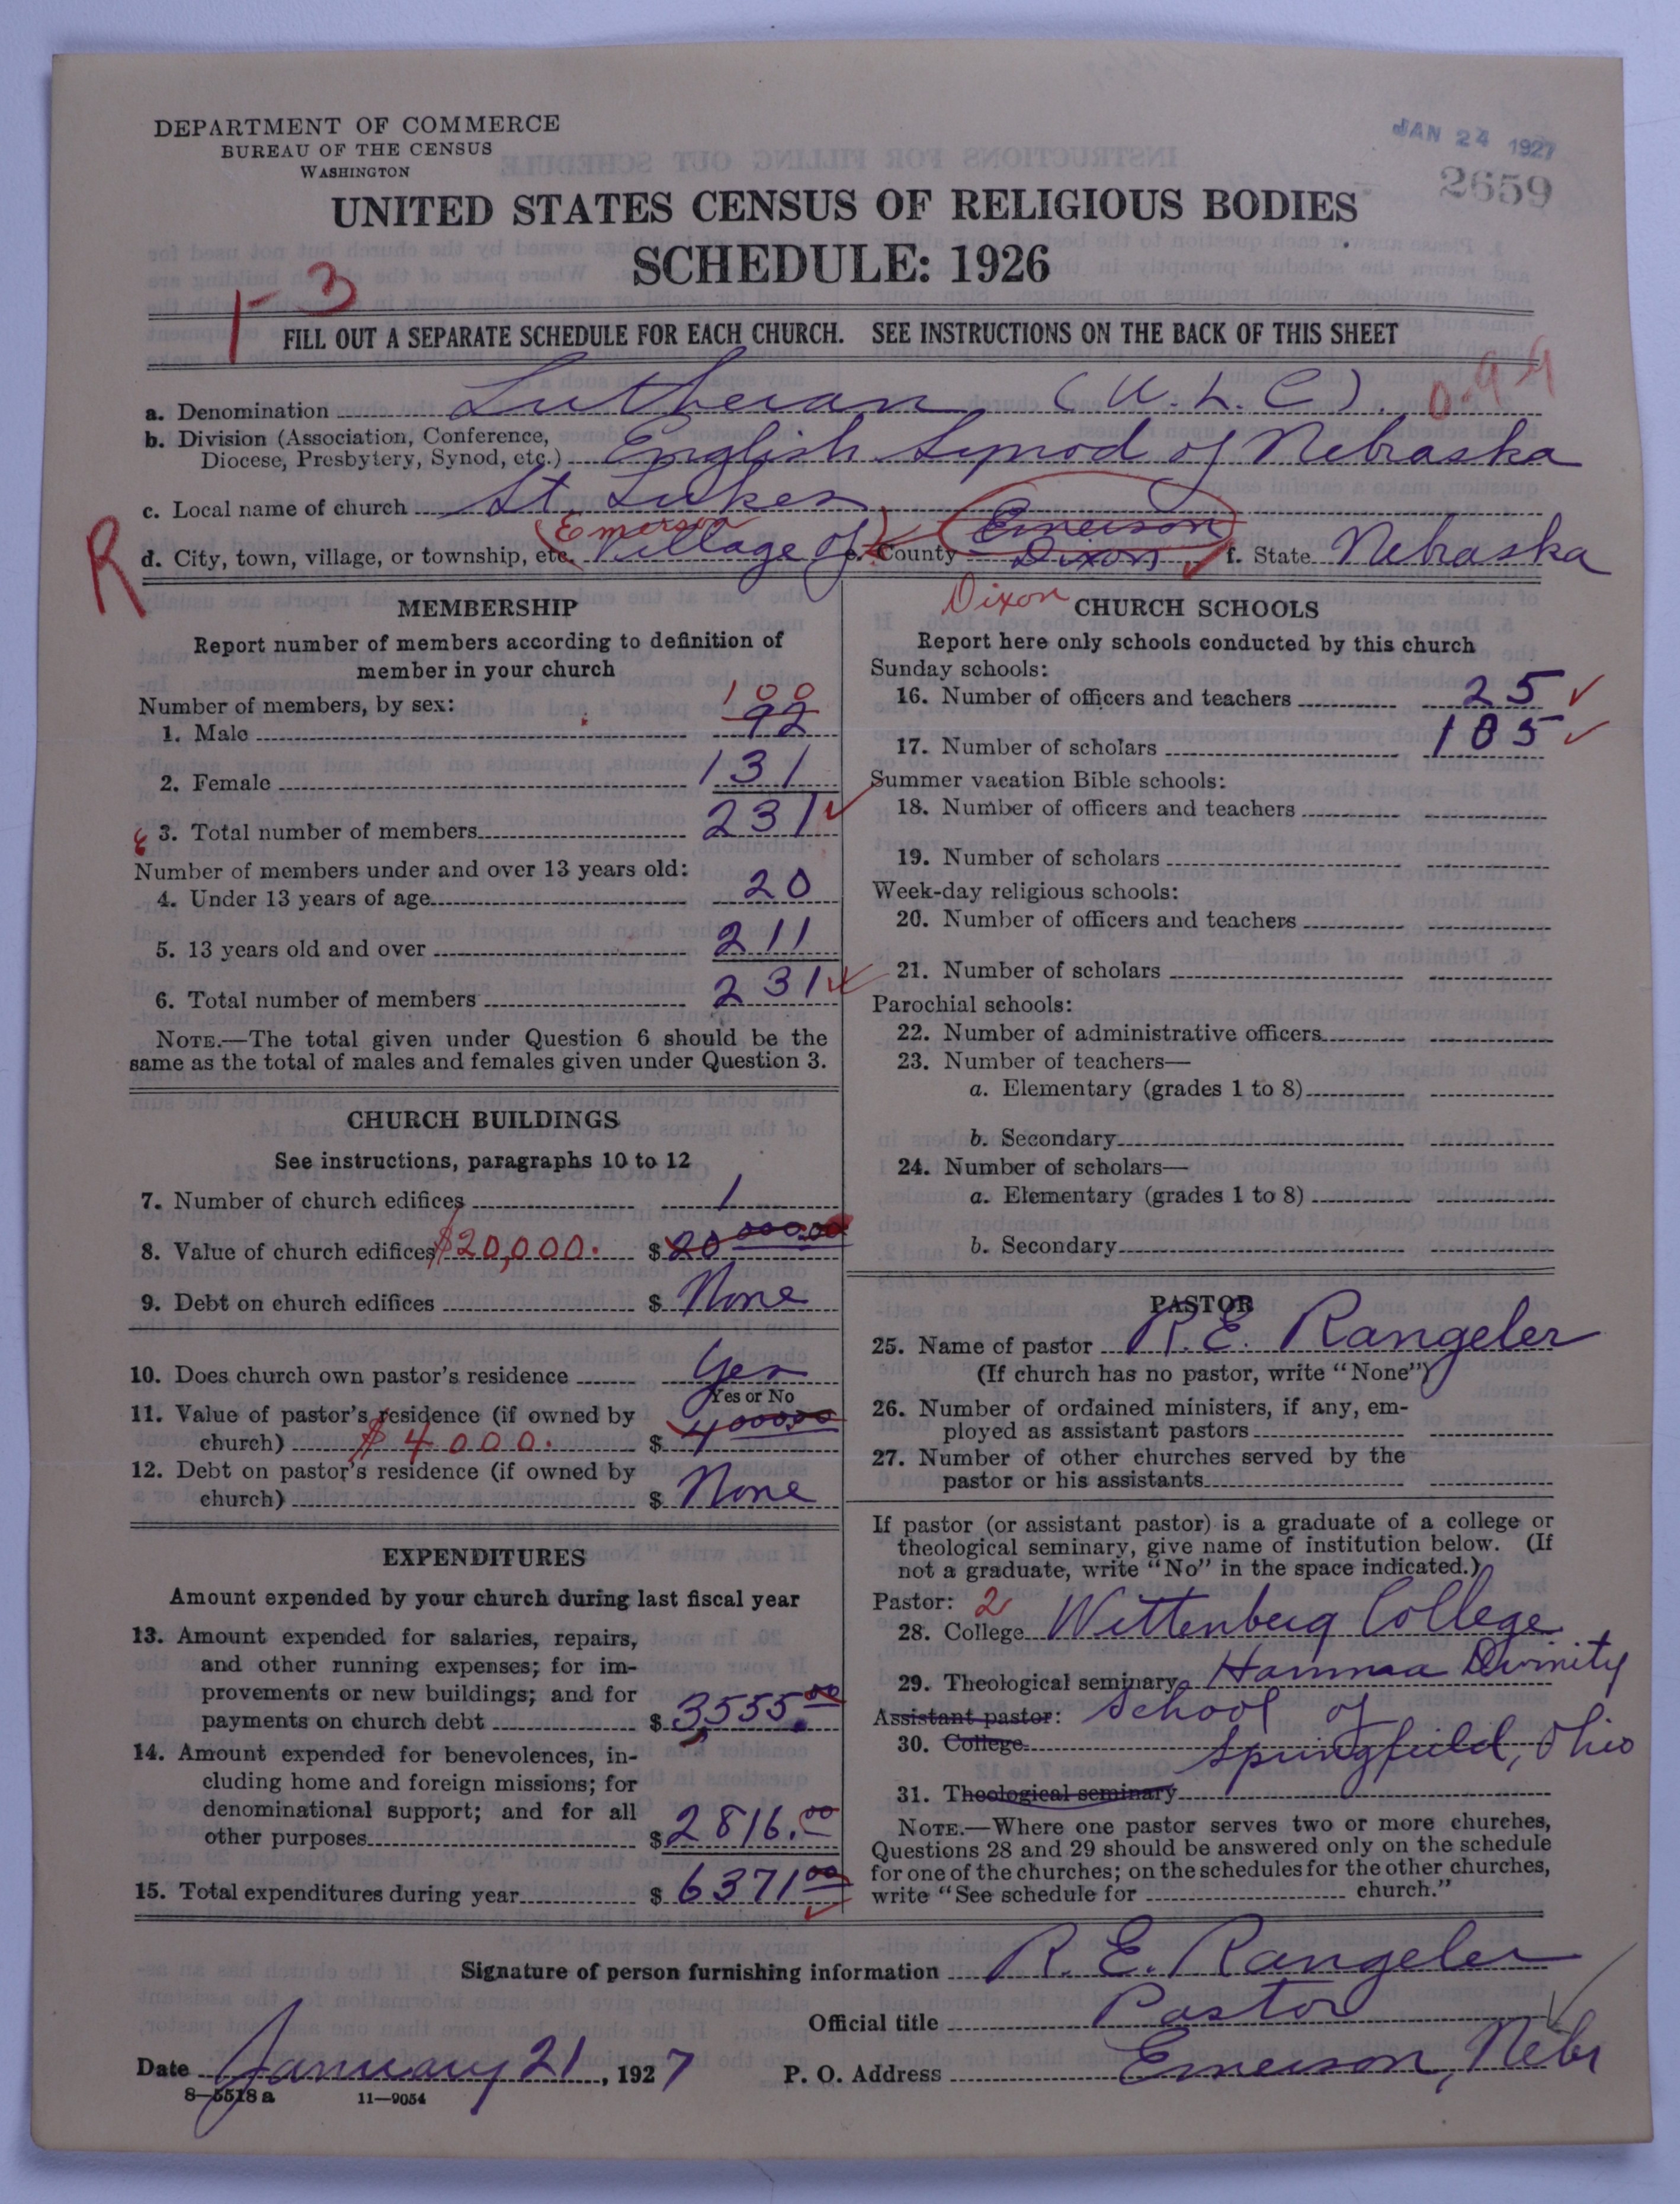 DEPARTMENT OF COMMERCE
BUREAU OF THE CENSUS
WASHINGTON
JAN 24 1927
2659
UNITED STATES CENSUS OF RELIGIOUS BODIES
SCHEDULE: 1926
1-3
FILL OUT A SEPARATE SCHEDULE FOR EACH CHURCH. SEE INSTRUCTIONS ON THE BACK OF THIS SHEET
a. Denomination Lutheran (U.L.C.)
b. Division (Association, Conference,
Diocese, Presbytery, Synod, etc.) English Synod of Nebraska
c. Local name of church St Lukes
R
d. City, town, village, or township, etc. Emerson Village of e. County Emerson Dixon f. State Nebraska
Dixon
MEMBERSHIP
Report number of members according to definition of
member in your church
Number of members, by sex:
100
1. Male 92
2. Female 131
3. Total number of members 231
Number of members under and over 13 years old:
4. Under 13 years of age 20
5. 13 years old and over 211
6. Total number of members 231
NOTE.—The total given under Question 6 should be the
same as the total of males and females given under Question 3.
CHURCH BUILDINGS
See instructions, paragraphs 10 to 12
7. Number of church edifices 1
8. Value of church edifices $20,000. $20 000.00
9. Debt on church edifices $ None
10. Does church own pastor's residence Yes
Yes or No
11. Value of pastor's residence (if owned by
church) $4000. $4 000.00
12. Debt on pastor's residence (if owned by
church) $ None
EXPENDITURES
Amount expended by your church during last fiscal year
13. Amount expended for salaries, repairs,
and other running expenses; for im-
provements or new buildings; and for
payments on church debt $3,555.00
14. Amount expended for benevolences, in-
cluding home and foreign missions; for
denominational support; and for all
other purposes $2816.00
15. Total expenditures during year $6371.00
CHURCH SCHOOLS
Report here only schools conducted by this church
Sunday schools:
16. Number of officers and teachers 25
17. Number of scholars 185
Summer vacation Bible schools:
18. Number of officers and teachers
19. Number of scholars
Week-day religious schools:
20. Number of officers and teachers
21. Number of scholars
Parochial schools:
22. Number of administrative officers
23. Number of teachers—
a. Elementary (grades 1 to 8)
b. Secondary
24. Number of scholars—
a. Elementary (grades 1 to 8)
b. Secondary
PASTOR
25. Name of pastor R.E. Rangeler
(If church has no pastor, write "None")
26. Number of ordained ministers, if any, em-
ployed as assistant pastors
27. Number of other churches served by the
pastor or his assistants
If pastor (or assistant pastor) is a graduate of a college or
theological seminary, give name of institution below. (If
not a graduate, write "No" in the space indicated.)
Pastor: 2
28. College Wittenberg College
29. Theological seminary Hamma Divinity
Assistant pastor: School of
30. College Springfield, Ohio
31. Theological seminary
NOTE.—Where one pastor serves two or more churches,
Questions 28 and 29 should be answered only on the schedule
for one of the churches; on the schedules for the other churches,
write "See schedule for church."
Signature of person furnishing information R. E. Rangeler
Official title Pastor
Date January 21, 1927 P. O. Address Emerson, Nebr
8—5518 a 11—9054